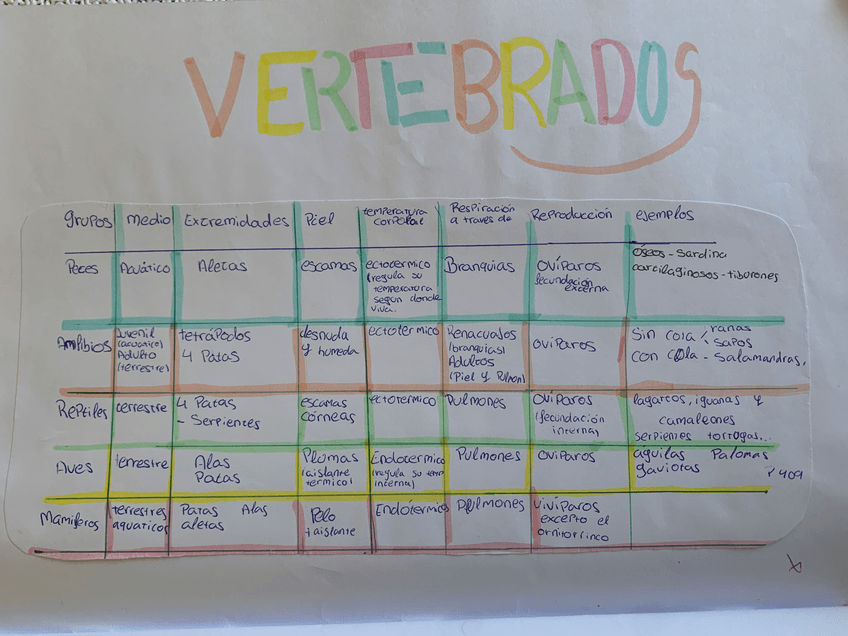 VERTEBRADOS
grupos medio Extremidades Piel temperatura corporal Respiración a través de Reproducción ejemplos
Peces Acuático Aletas escamas ectotermico (regula su temperatura segun donde viva. Branquias Ovíparos fecundación externa óseos - sardina
cartilaginosos - tiburones
Anfibios Juvenil (acuatico) Adulto (terrestre) tetrápodos 4 Patas desnuda y humeda ectotermico Renacuajos (branquias) Adultos (Piel y Pulmon) ovíparos Sin cola ranas
sapos
con cola - Salamandras,
Reptiles terrestre 4 Patas - Serpientes escamas córneas ectotermico Pulmones Ovíparos (fecundación interna) lagartos, iguanas y
camaleones
serpientes tortugas...
Aves terrestre Alas Patas Plumas (aislante termico) Endotermico (regula su tem interna) Pulmones Ovíparos aguilas Palomas
gaviotas
Mamiferos terrestres aquaticos Patas Alas aletas Pelo taislante Endotermico Pulmones Vivíparos excepto el ornitorrinco